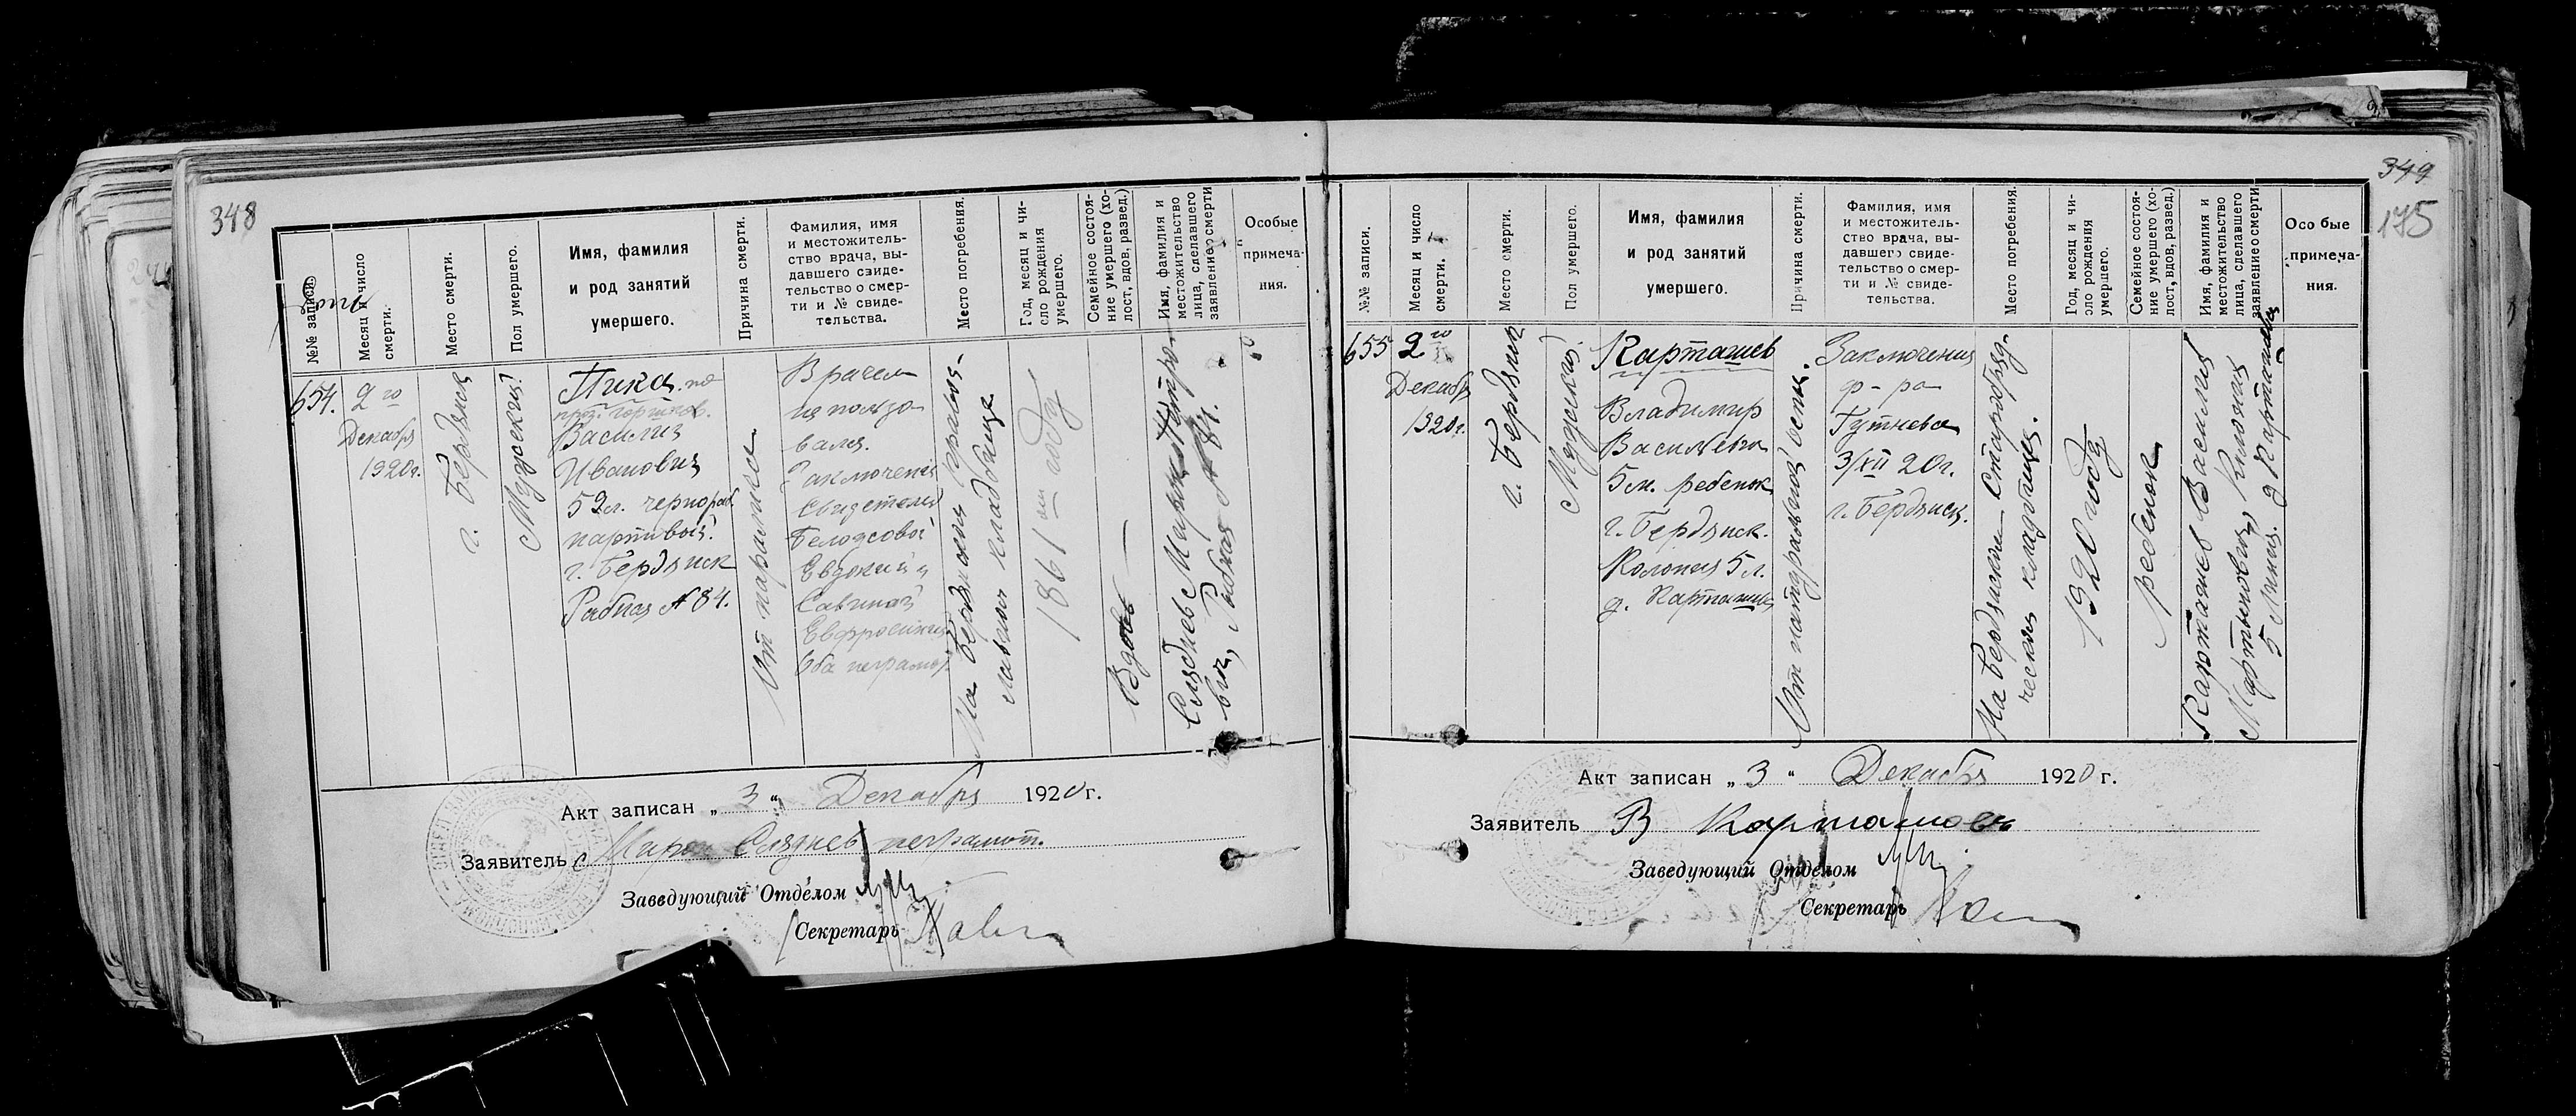 348
№№ записи.
Месяц и число
смерти.
Место смерти.
Пол умершего.
Имя, фамилия
и род занятий
умершего.
Причина смерти.
Фамилия, имя
и местожитель-
ство врача, вы-
давшего свиде-
тельство о смер-
ти и № свиде-
тельства.
Место погребения.
Год, месяц и чи-
сло рождения
умершего.
Семейное состоя-
ние умершего (хо-
лост, вдов, развед.)
Имя, фамилия и
местожительство
лица, сделавшего
заявление о смерти
Особые
примеча-
ния.
654.
2го
Декабря
1920г.
г. Бердянск
Мужской
Пика по
Василий
Иванович
52л. чернораб.
портовый.
г. Бердянск
Рабпая № 84.
От паралича
Врачем
не пользо-
вался.
Заключение
Свидетелей
Белоусовой
Евдокии и
Савиной
Евфросинии
Оба неграмот.
На Бердянском правос-
лавном кладбище
1861 году
Вдовец
Слязнев Марк
84.
Акт записан „ 3 “ Декабря 1920 г.
Заявитель Марк Слязнев неграмот.
Заведующий Отделом
Секретарь
349
175
№№ записи.
Месяц и число
смерти.
Место смерти.
Пол умершего.
Имя, фамилия
и род занятий
умершего.
Причина смерти.
Фамилия, имя
и местожитель-
ство врача, вы-
давшего свиде-
тельство о смер-
ти и № свиде-
тельства.
Место погребения.
Год, месяц и чи-
сло рождения
умершего.
Семейное состоя-
ние умершего (хо-
лост, вдов, развед.)
Имя, фамилия и
местожительство
лица, сделавшего
заявление о смерти
Особые
примеча-
ния.
655
2го
Декабря
1920г.
г. Бердянск
Мужской
Карташев
Владимир
Васильевич
5м. ребенок
г. Бердянск.
Колония 5 л.
д. Карташева
От натуральной оспы.
Заключения
д-ра
Гутнева
3/XII 20г.
г. Бердянск.
На Бердянском Старобряд-
ческом кладбище.
1920 году
Ребенок
Карташев Василий
Мартынович, Колония
5 Линия. д Карташева
Акт записан „ 3 “ Декабря 1920 г.
Заявитель В Карташовъ
Заведующий Отделом
Секретарь